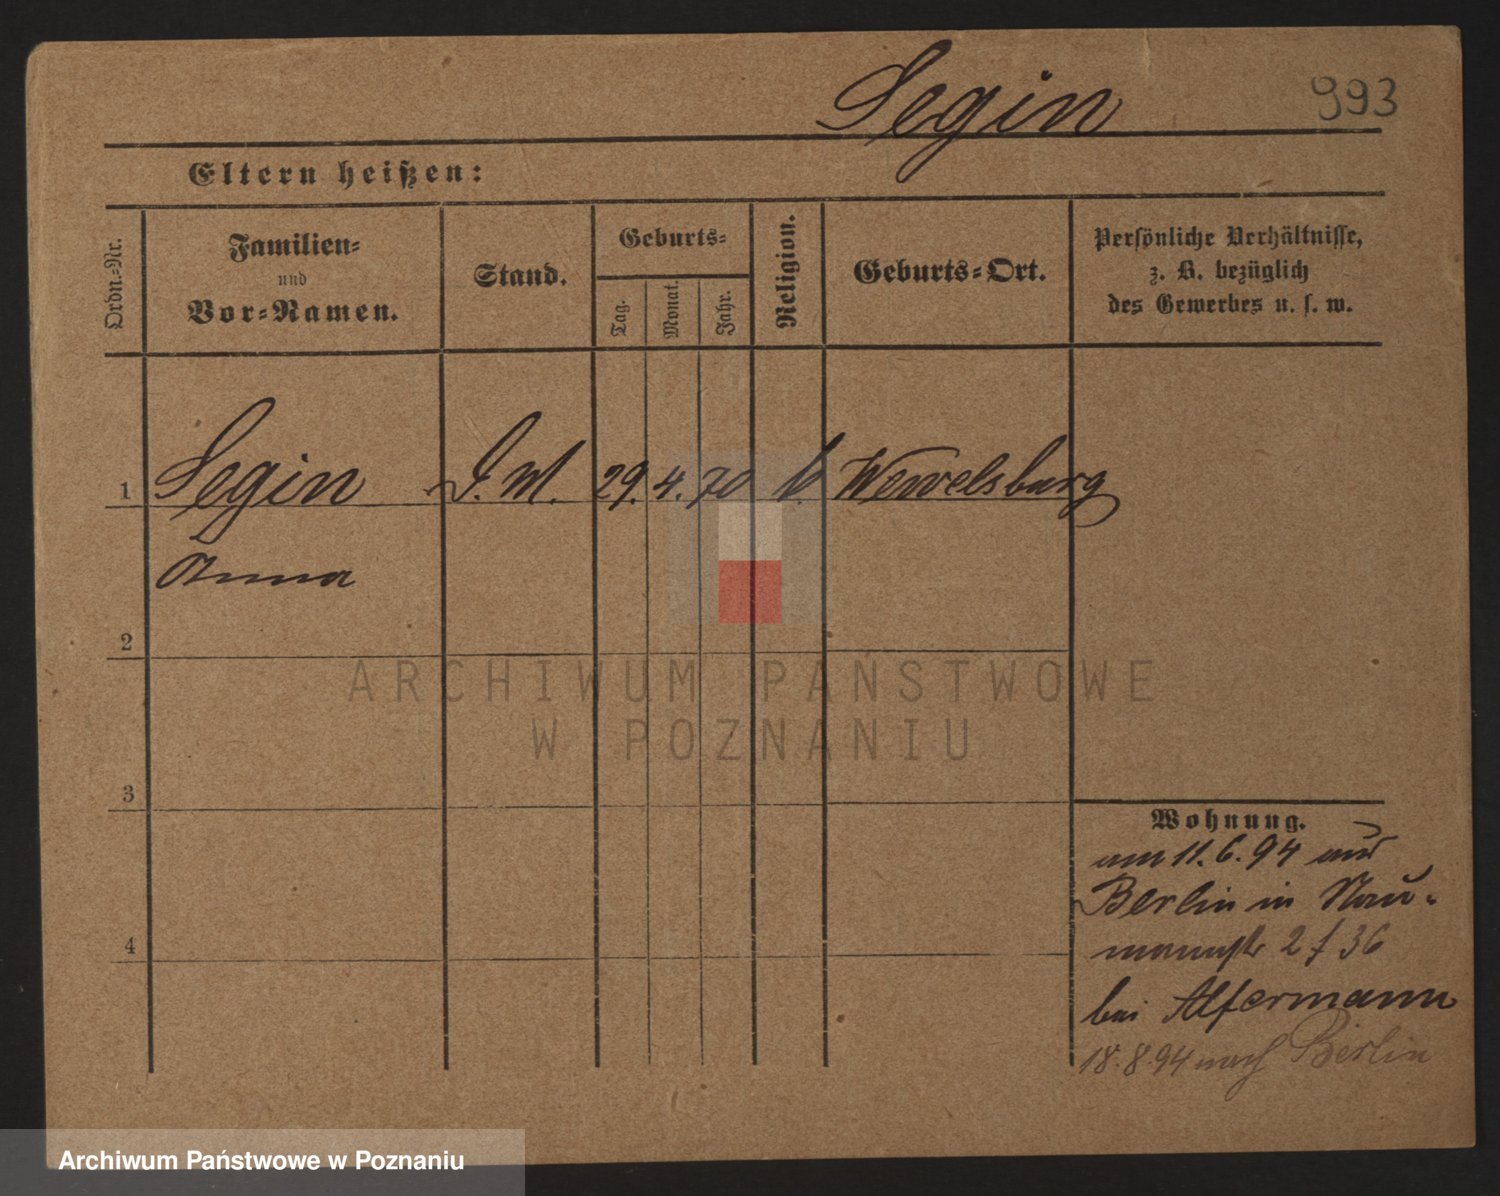 Segin
993
Eltern heißen:
Ordn.-Nr.
Familien-
und
Vor-Namen.
Stand.
Geburts-
Tag.
Monat.
Jahr.
Religion.
Geburts-Ort.
Persönliche Verhältnisse,
z. B. bezüglich
des Gewerbes u. s. w.
1 Segin D. M. 29. 4. 70 k. Wewelsburg
Anna
2
3
4
Wohnung.
am 11. 6. 94 aus
Berlin in Nau-
mannstr 2 f 36
bei Alfermann
18. 8. 94 nach Berlin
ARCHIWUM PAŃSTWOWE
W POZNANIU
Archiwum Państwowe w Poznaniu